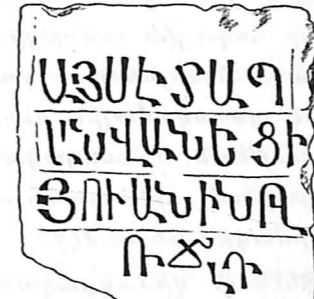 ԱՅՍԷՏԱՊ
ԱՆՎԱՆԵՑԻ
ՅՈՒԱՆԻՆԹ
ՌՃԴ